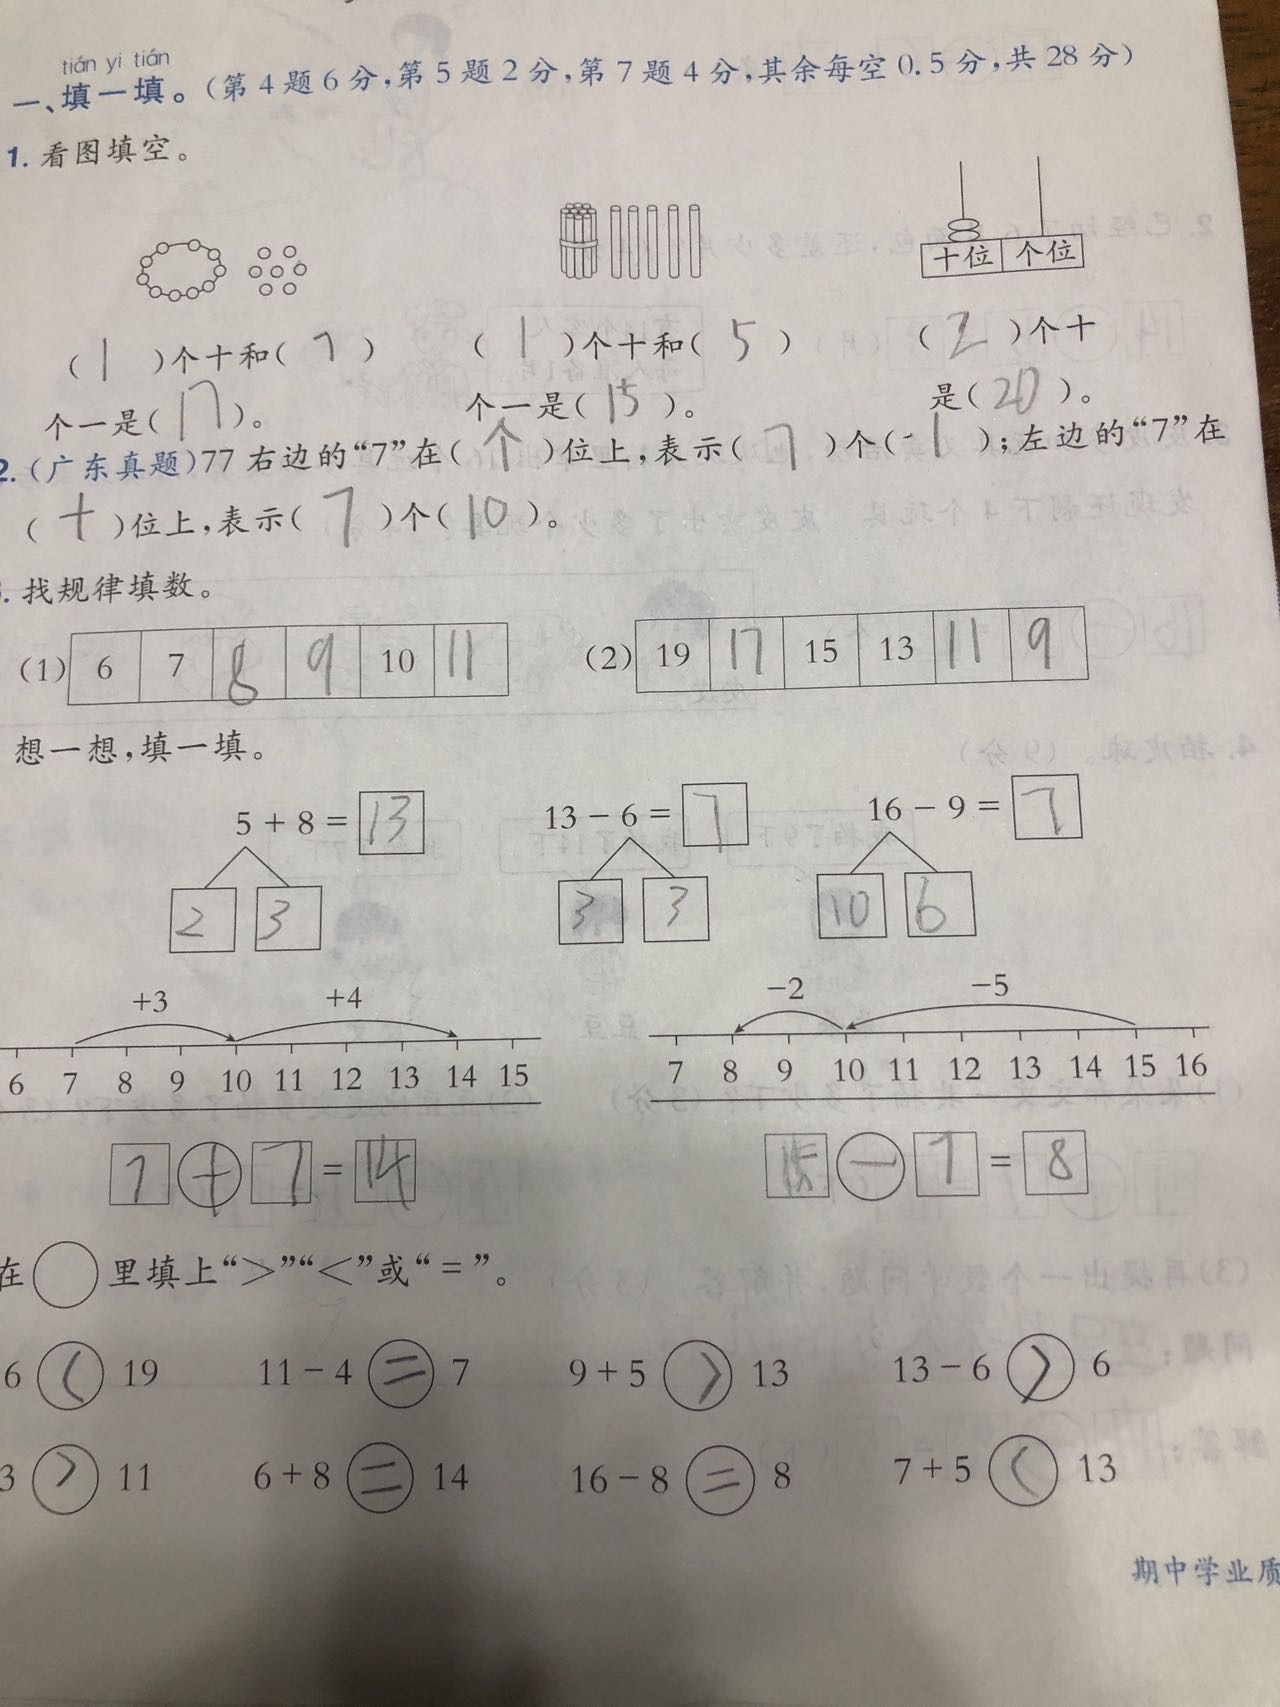 tián yi tián
一、填一填。(第4题6分,第5题2分,第7题4分,其余每空0.5分,共28分)
1. 看图填空。
十位 个位
(1)个十和(7) (1)个十和(5) (2)个十
个一是(17)。 个一是(15)。 是(20)。
2.(广东真题)77右边的“7”在(个)位上,表示(7)个(1);左边的“7”在
(十)位上,表示(7)个(10)。
. 找规律填数。
(1) 6 7 8 9 10 11 (2) 19 17 15 13 11 9
想一想,填一填。
5+8=13 13-6=7 16-9=7
2 3 3 3 10 6
+3 +4 -2 -5
6 7 8 9 10 11 12 13 14 15 7 8 9 10 11 12 13 14 15 16
7+7=14 15-7=8
在○里填上“>”“<”或“=”。
6<19 11-4=7 9+5>13 13-6>6
3>11 6+8=14 16-8=8 7+5<13
期中学业质